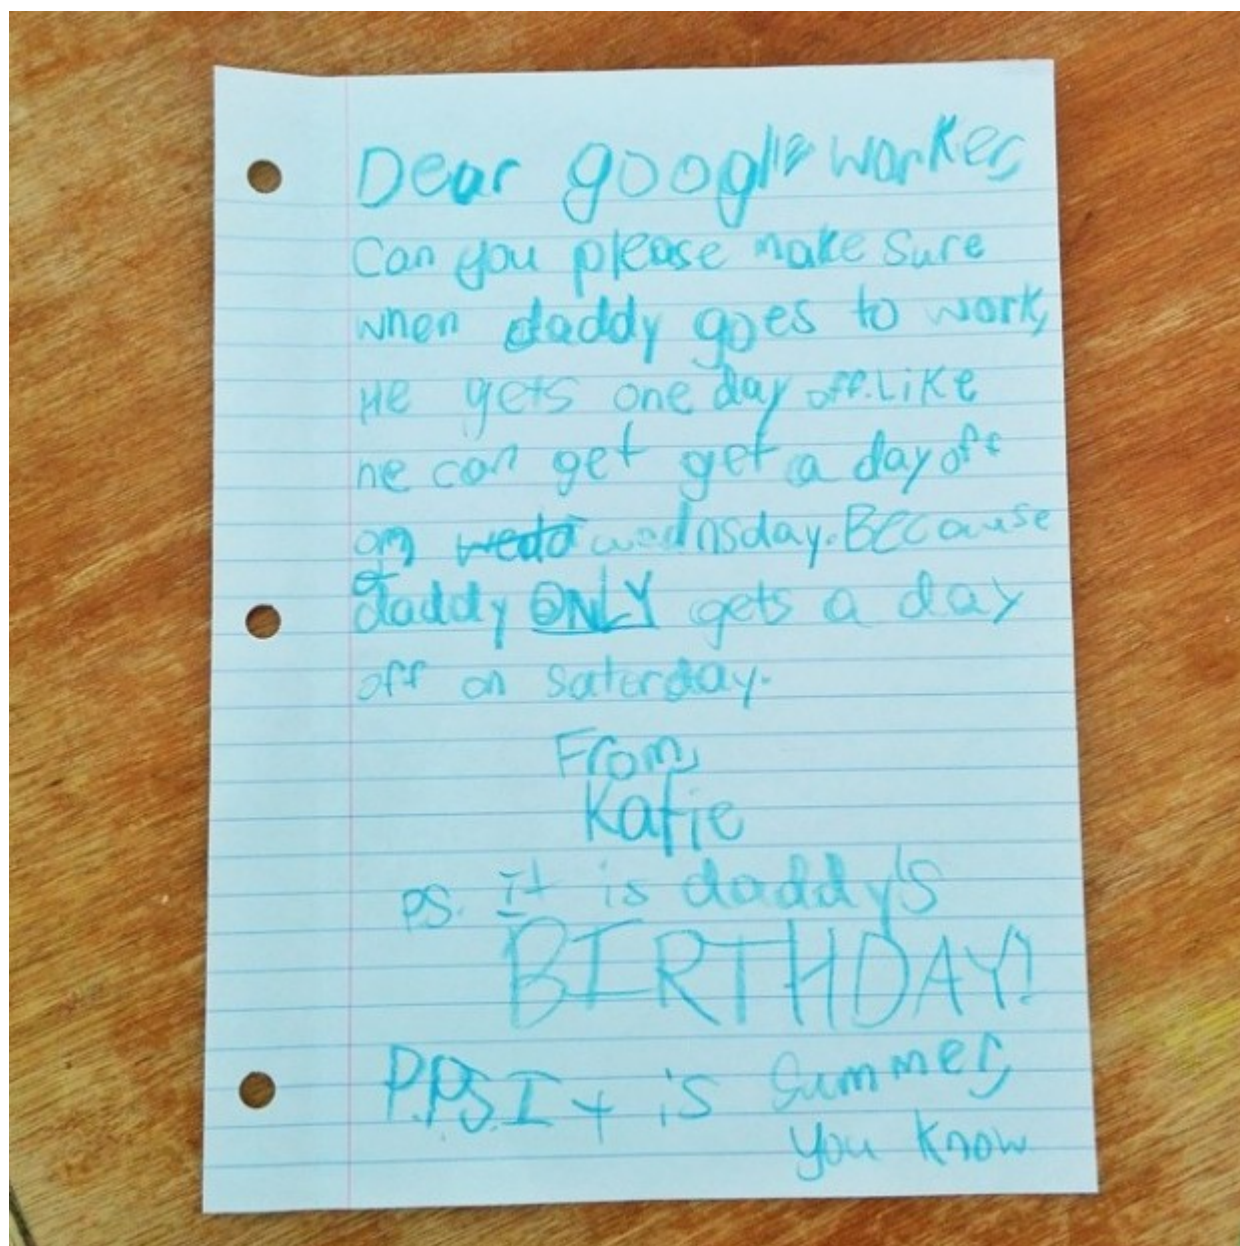 Dear google worker,
Can you please make sure
when daddy goes to work,
He gets one day off. Like
he can get get a day off
on wednsday. Because
daddy ONLY gets a day
off on saterday.
From,
Katie
PS. It is daddy's
BIRTHDAY!
P.P.S. It is summer,
you know